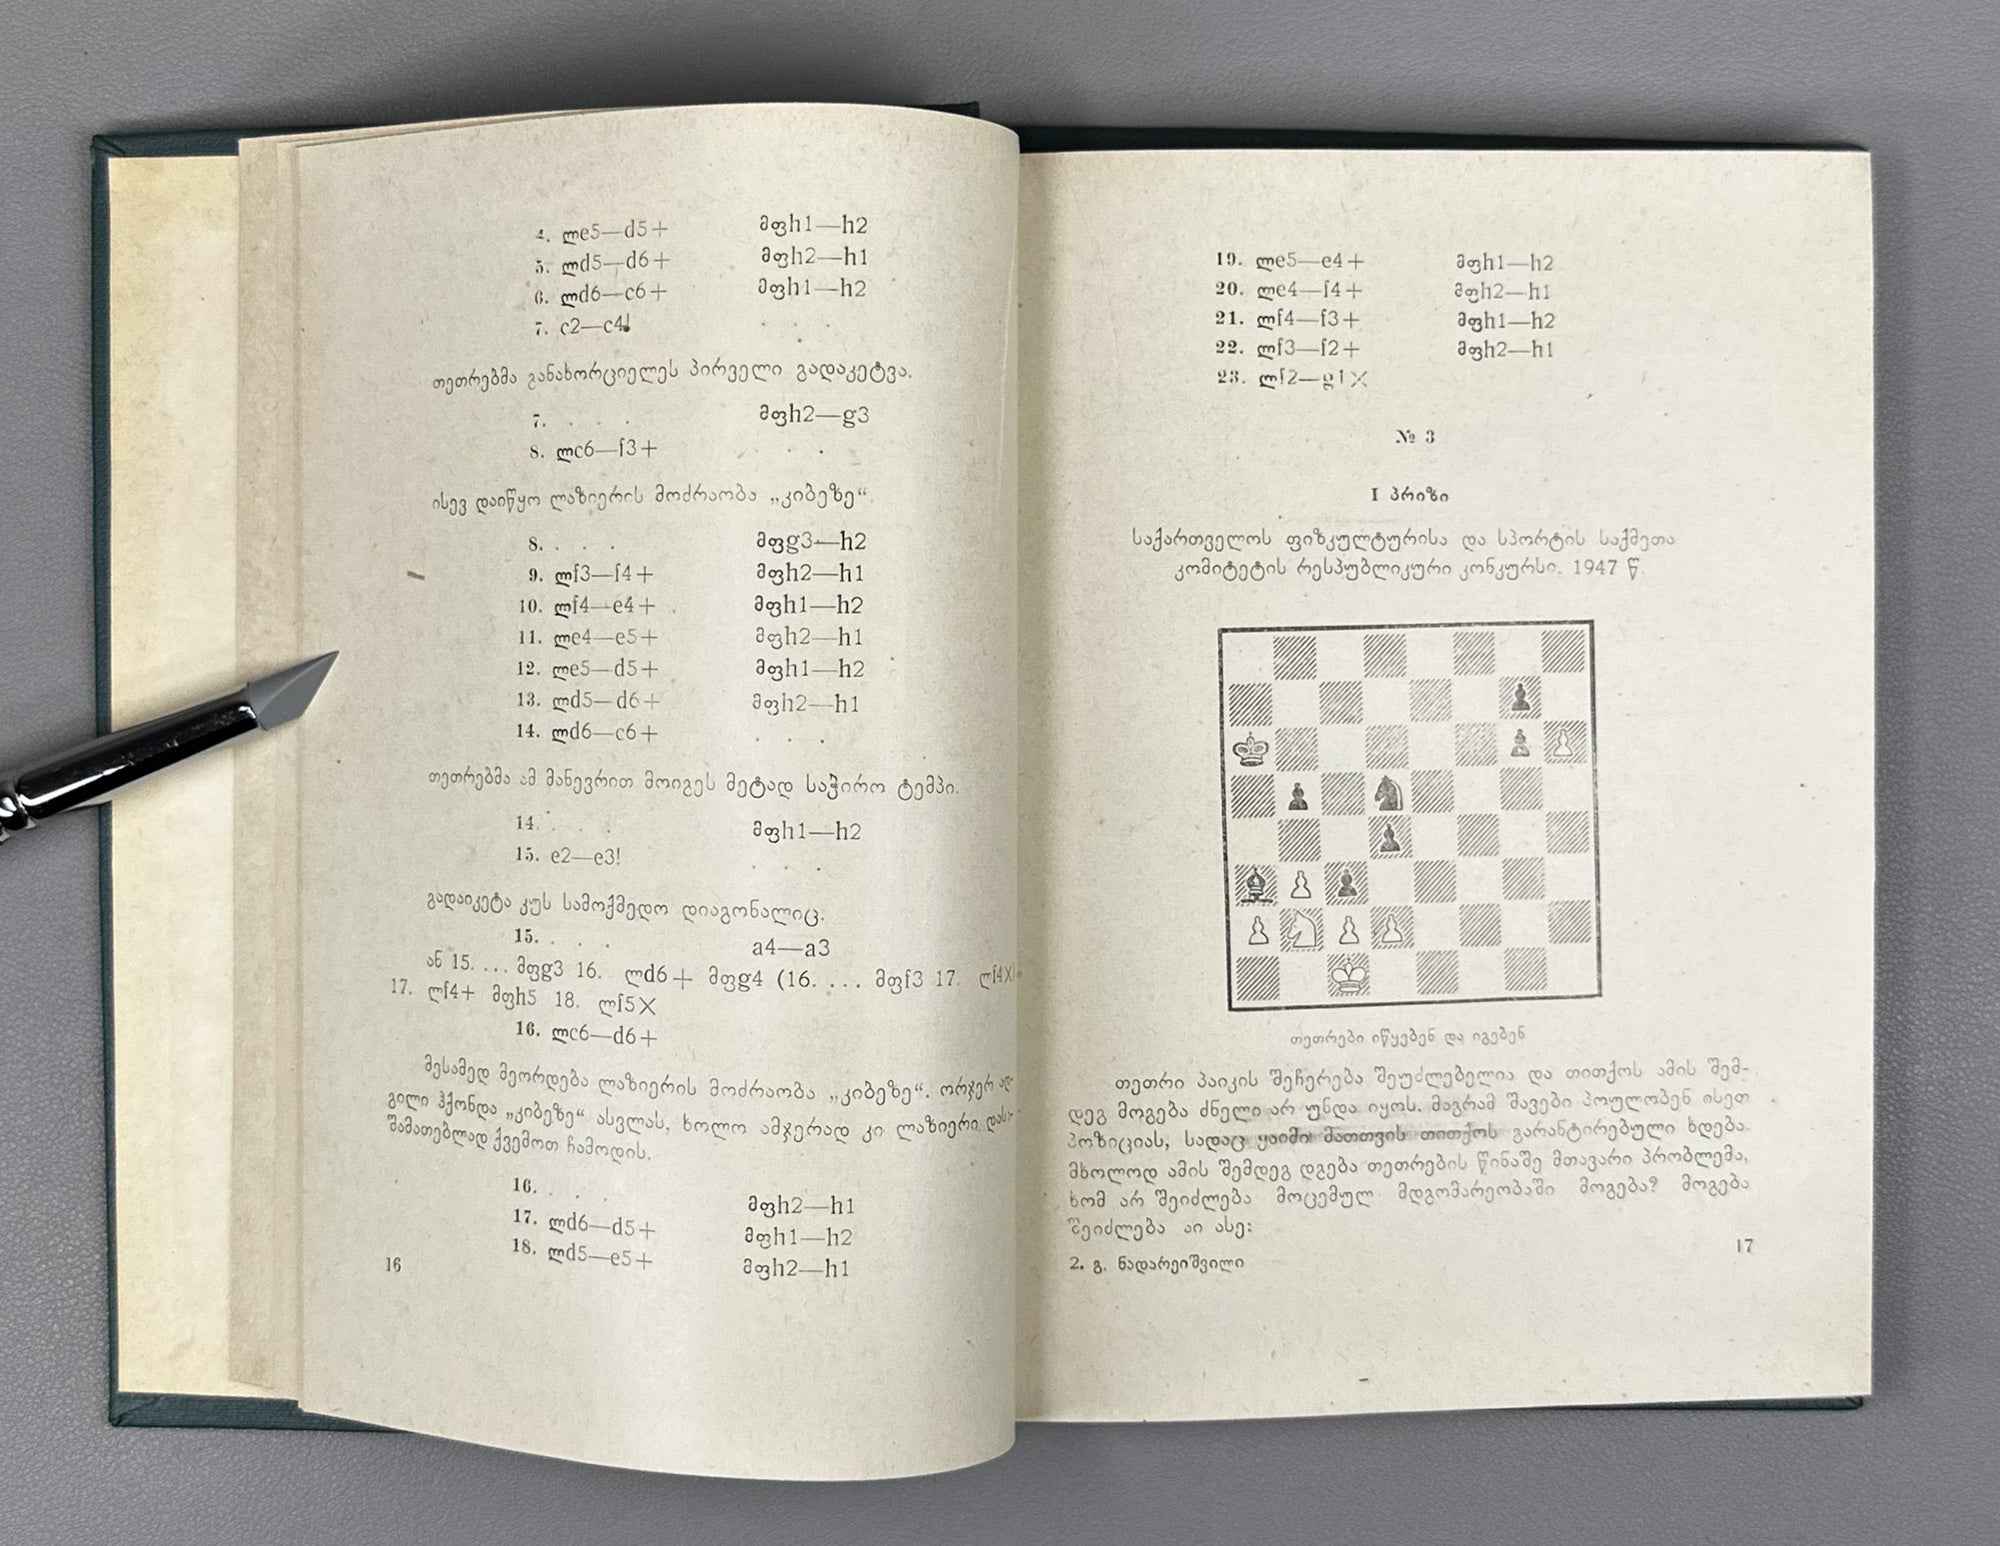 4. ლe5—d5+ მფh1—h2
5. ლd5—d6+ მფh2—h1
6. ლd6—c6+ მფh1—h2
7. c2—c4! . .
თეთრებმა განახორციელეს პირველი გადაკეტვა.
7. . . . მფh2—g3
8. ლc6—f3+ . . .
ისევ დაიწყო ლაზიერის მოძრაობა „კიბეზე“
8. . . . მფg3—h2
9. ლf3—f4+ მფh2—h1
10. ლf4—e4+ მფh1—h2
11. ლe4—e5+ მფh2—h1
12. ლe5—d5+ მფh1—h2
13. ლd5—d6+ მფh2—h1
14. ლd6—c6+ . . .
თეთრებმა ამ მანევრით მოიგეს მეტად საჭირო ტემპი.
14. . . . მფh1—h2
15. e2—e3! . . .
გადაიკეტა კუს სამოქმედო დიაგონალიც.
15. . . . a4—a3
ან 15. ... მფg3 16. ლd6+ მფg4 (16. ... მფf3 17. ლf4X)
17. ლf4+ მფh5 18. ლf5X
16. ლc6—d6+
მესამედ მეორდება ლაზიერის მოძრაობა „კიბეზე“. ორჯერ ად-
გილი ჰქონდა „კიბეზე“ ასვლას, ხოლო ამჯერად კი ლაზიერი
შამათებლად ქვემოთ ჩამოდის.
16. . . . მფh2—h1
17. ლd6—d5+ მფh1—h2
18. ლd5—e5+ მფh2—h1
16
19. ლe5—e4+ მფh1—h2
20. ლe4—f4+ მფh2—h1
21. ლf4—f3+ მფh1—h2
22. ლf3—f2+ მფh2—h1
23. ლf2—g1X
№ 3
I პრიზი
საქართველოს ფიზკულტურისა და სპორტის საქმეთა
კომიტეტის რესპუბლიკური კონკურსი. 1947 წ.
თეთრები იწყებენ და იგებენ
თეთრი პაიკის შეჩერება შეუძლებელია და თითქოს ამის შემ-
დეგ მოგება ძნელი არ უნდა იყოს. მაგრამ შავები პოულობენ ისეთ
პოზიციას, სადაც ყაიმი მათთვის თითქოს გარანტირებული ხდება.
მხოლოდ ამის შემდეგ დგება თეთრების წინაშე მთავარი პრობლემა,
ხომ არ შეიძლება მოცემულ მდგომარეობაში მოგება? მოგება
შეიძლება აი ასე:
2. გ. ნადარეიშვილი
17